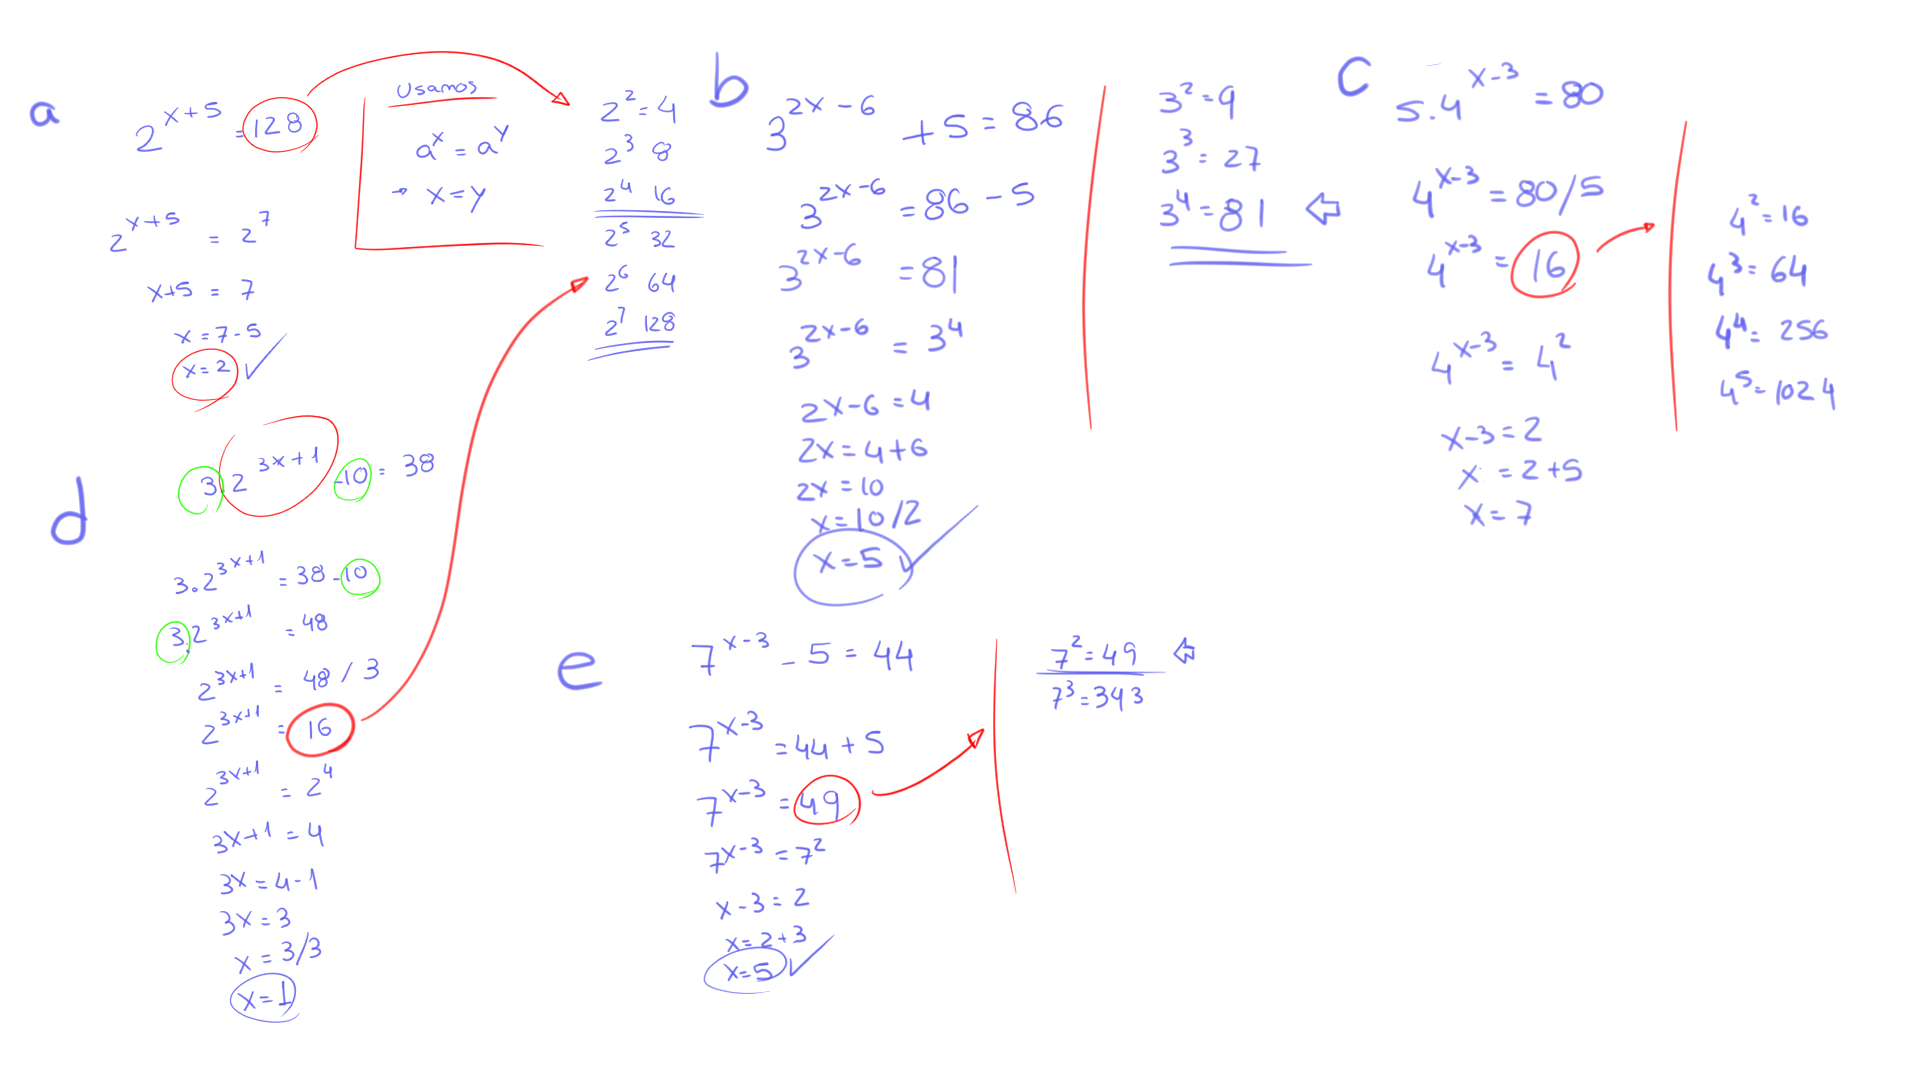 a
2^{x+5} = 128
2^{x+5} = 2^7
x+5 = 7
x = 7-5
x = 2
Usamos
a^x = a^y
→ x = y
2^2 = 4
2^3 8
2^4 16
2^5 32
2^6 64
2^7 128
b
3^{2x-6} + 5 = 86
3^{2x-6} = 86 - 5
3^{2x-6} = 81
3^{2x-6} = 3^4
2x-6 = 4
2x = 4+6
2x = 10
x = 10/2
x = 5
3^2 = 9
3^3 = 27
3^4 = 81
c
5.4^{x-3} = 80
4^{x-3} = 80/5
4^{x-3} = 16
4^{x-3} = 4^2
x-3 = 2
x = 2+5
x = 7
4^2 = 16
4^3 = 64
4^4 = 256
4^5 = 1024
d
3.2^{3x+1} -10 = 38
3.2^{3x+1} = 38 -10
3.2^{3x+1} = 48
2^{3x+1} = 48 / 3
2^{3x+1} = 16
2^{3x+1} = 2^4
3x+1 = 4
3x = 4-1
3x = 3
x = 3/3
x = 1
e
7^{x-3} - 5 = 44
7^{x-3} = 44 + 5
7^{x-3} = 49
7^{x-3} = 7^2
x-3 = 2
x = 2+3
x = 5
7^2 = 49
7^3 = 343